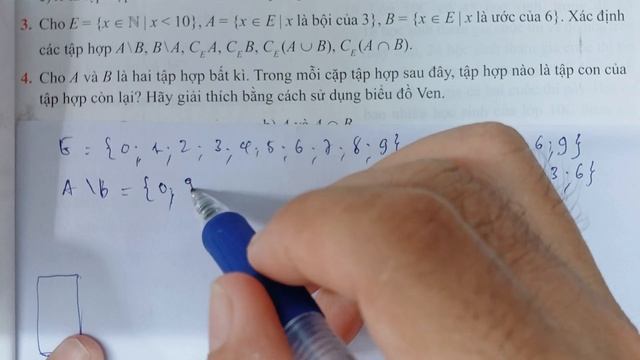 3. Cho E = {x ∈ ℕ | x < 10}, A = {x ∈ E | x là bội của 3}, B = {x ∈ E | x là ước của 6}. Xác định
các tập hợp A\B, B\A, C_E A, C_E B, C_E(A ∪ B), C_E(A ∩ B).
4. Cho A và B là hai tập hợp bất kì. Trong mỗi cặp tập hợp sau đây, tập hợp nào là tập con của
tập hợp còn lại? Hãy giải thích bằng cách sử dụng biểu đồ Ven.
E = {0; 1; 2; 3; 4; 5; 6; 7; 8; 9}
6; 9}
A \ B = {0; 9
3; 6}